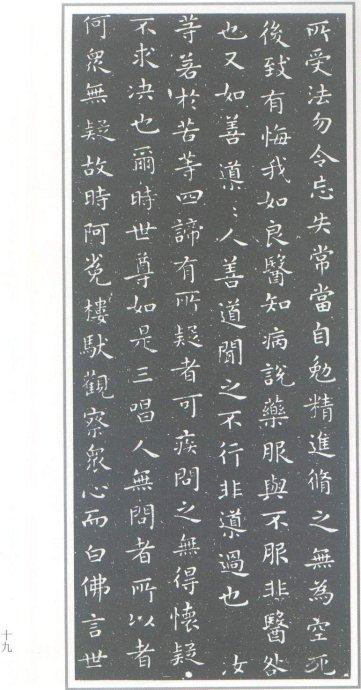 所受法勿令忘失常當自勉精進脩之無為空死
後致有悔我如良醫知病說藥服與不服非醫咎
也又如善導〻人善道聞之不行非導過也 汝
等若於苦等四諦有所疑者可疾問之無得懷疑
不求决也爾時世尊如是三唱人無問者所以者
何眾無疑故時阿㝹樓馱觀察眾心而白佛言世
十九